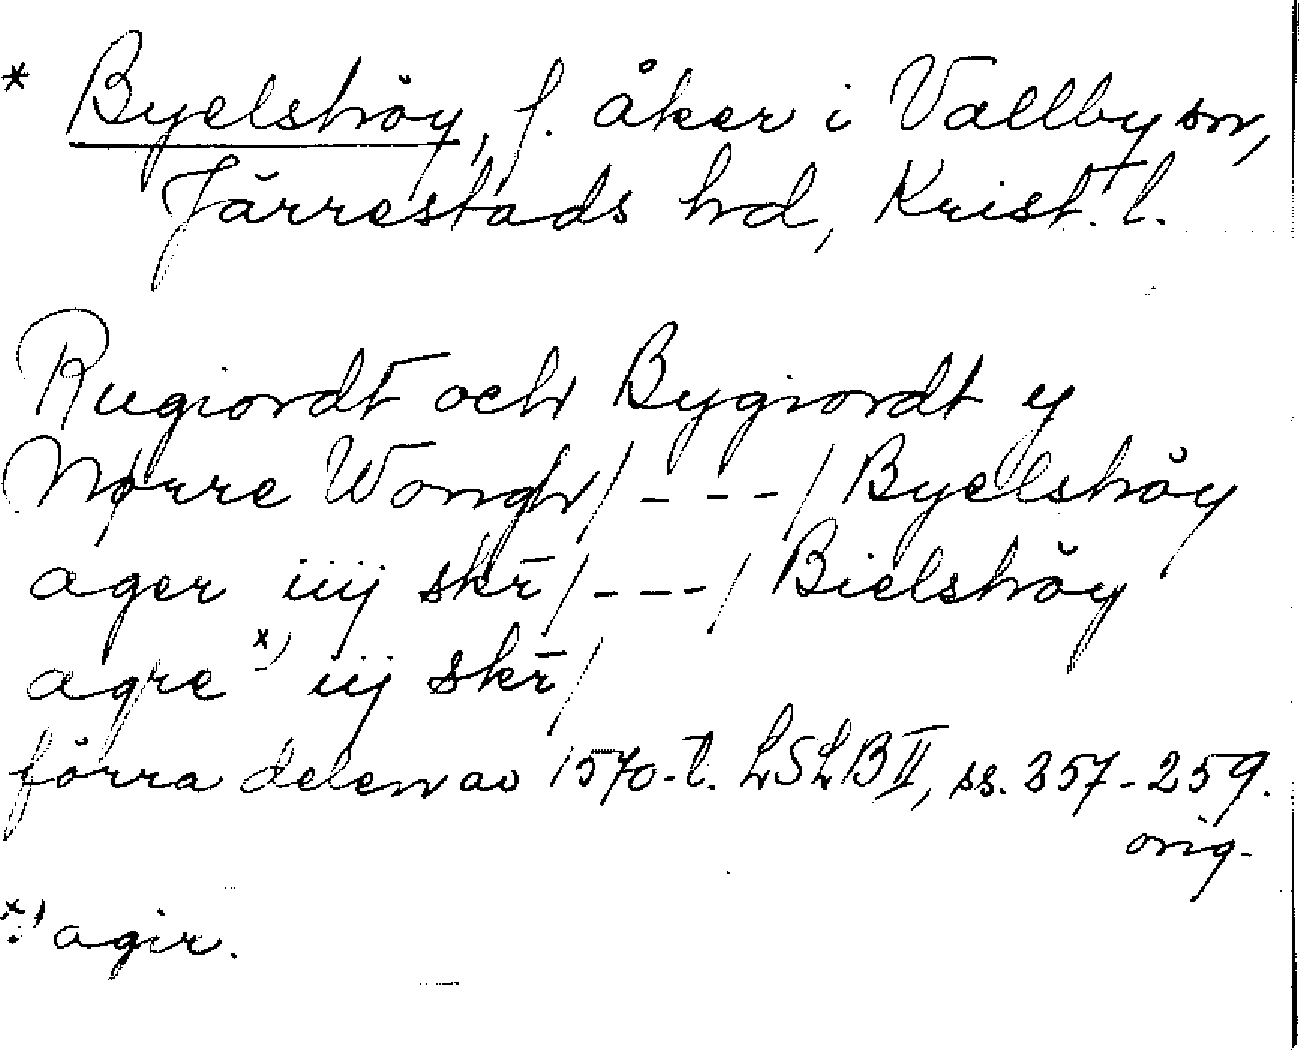 * Byelshöy, f. åker i Vallby sn,
Järrestads hd, Krist. l.
Rugiordt och Bygiordt y
Nørre Wongh/---/Byelshöy
ager iiij skr̄/---/Bielshöy
agre *) iij skr̄/
förra delen av 1570-t. LSLB II, ss. 257-259.
orig.
*) agir.